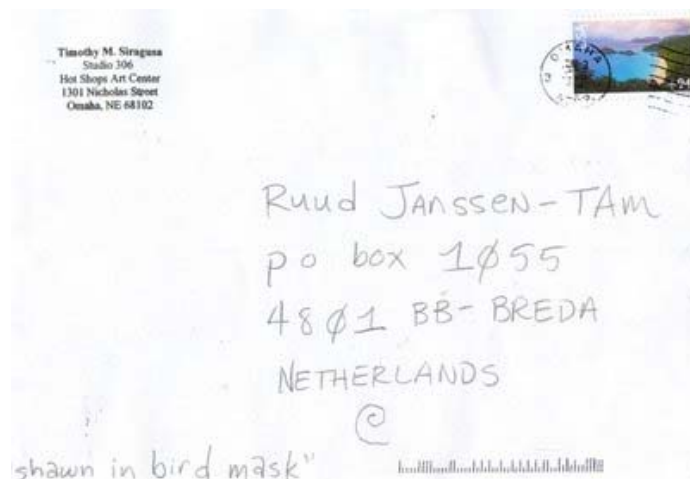 Timothy M. Siragusa
Studio 306
Hot Shops Art Center
1301 Nicholas Street
Omaha, NE 68102
OMAHA
Ruud Janssen-TAm
po box 1Ø55
48Ø1 BB-BREDA
NETHERLANDS
shawn in bird mask"